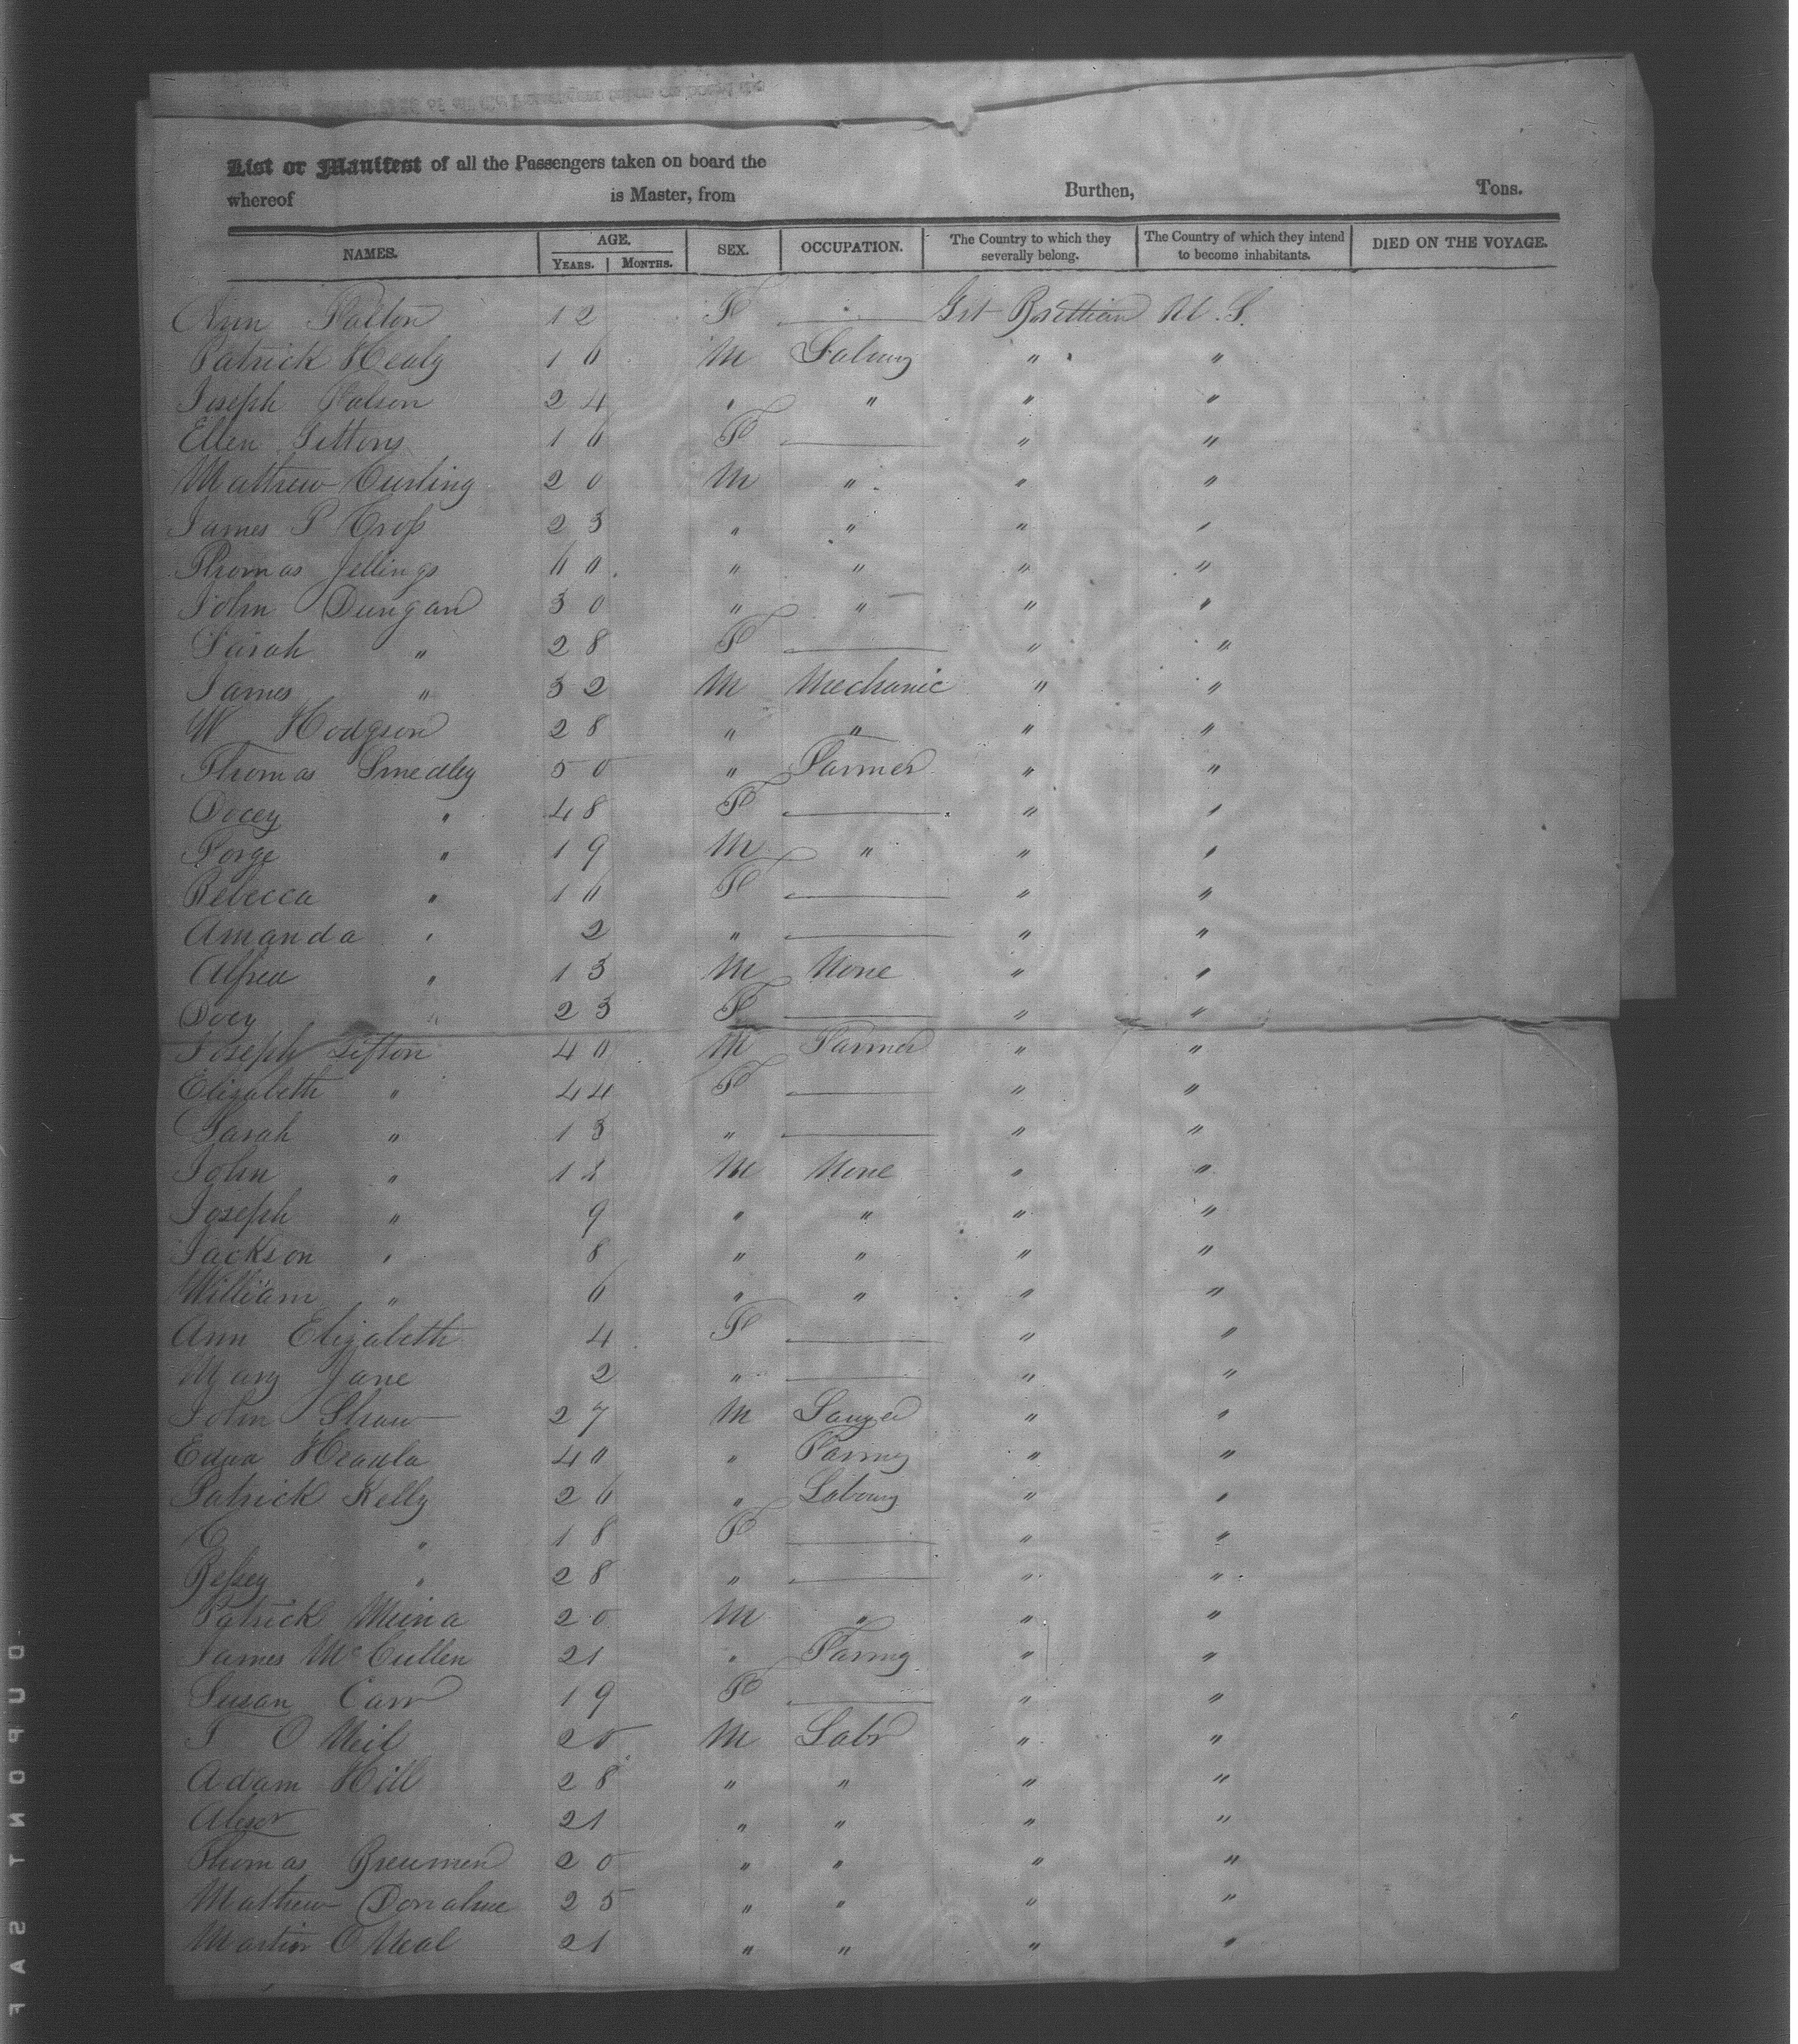 List or Manifest of all the Passengers taken on board the
whereof is Master, from Burthen, Tons.
NAMES. AGE. YEARS. MONTHS. SEX. OCCUPATION. The Country to which they severally belong. The Country of which they intend to become inhabitants. DIED ON THE VOYAGE.
Ann 12 F — Grt Brittian U.S.
Patrick Healy 16 M " "
Joseph 24 " " " "
Ellen 16 F — " "
Matthew Curling 20 M " " "
James P Croſs 23 " " " "
Thomas Jellings 40 " " " "
John Dungan 30 " " " "
Sarah " 28 F — " "
James " 32 M Mechanic " "
W Hodgson 28 " " " "
Thomas Smedley 50 " Farmer " "
Docey " 48 F — " "
Gorge " 19 M " " "
Rebecca " 16 F — " "
Amanda " 2 " — " "
Alfred " 13 M None " "
Docy " 23 F — " "
Joseph Tifton 40 M Farmer " "
Elizabeth " 44 F — " "
Sarah " 13 " — " "
John " M None " "
Joseph " 9 " " " "
Jackson " 8 " " " "
William " 6 " " " "
Ann Elizabeth 4 F — " "
Mary Jane 2 " — " "
John Shaw 27 M " "
40 " Farmg " "
Patrick Kelly 26 " Labourg " "
E " 18 F — " "
Beſsey " 28 " — " "
Patrick 20 M " " "
James McCullen 21 " Farmg " "
Susan Carr 19 F — " "
O Neil 20 M Labr " "
Adam Hill 28 " " " "
21 " " " "
Thomas 20 " " " "
Mathew Donahue 25 " " " "
Martin O Neal 21 " " " "
DUPONT SAF